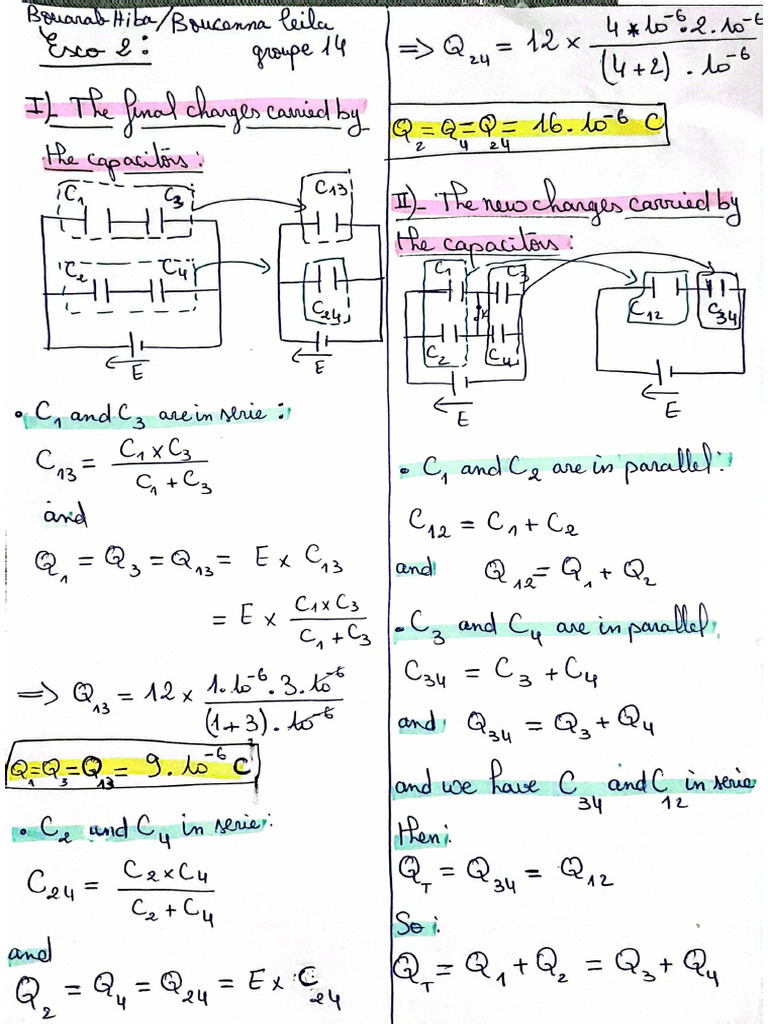 Bouarab Hiba/Boucenna Leila
Exco 2: groupe 14
I)- The final charges carried by
the capacitors:
C1 C3 C13
C2 C4 C24
E E
• C1 and C3 are in serie:
C13 = C1 x C3 / C1 + C3
and
Q1 = Q3 = Q13 = E x C13
= E x C1 x C3 / C1 + C3
=> Q13 = 12 x 1.10^-6 . 3.10^-6 / (1+3) . 10^-6
Q1 = Q3 = Q13 = 9.10^-6 C
• C2 and C4 in serie:
C24 = C2 x C4 / C2 + C4
and
Q2 = Q4 = Q24 = E x C24
=> Q24 = 12 x 4*10^-6 . 2.10^-6 / (4+2) . 10^-6
Q2 = Q4 = Q24 = 16.10^-6 C
II)- The new charges carried by
the capacitors:
C1 C3 C12 C34
K
C2 C4
E E
• C1 and C2 are in parallel:
C12 = C1 + C2
and Q12 = Q1 + Q2
• C3 and C4 are in parallel:
C34 = C3 + C4
and Q34 = Q3 + Q4
and we have C34 and C12 in serie
then:
QT = Q34 = Q12
So:
QT = Q1 + Q2 = Q3 + Q4